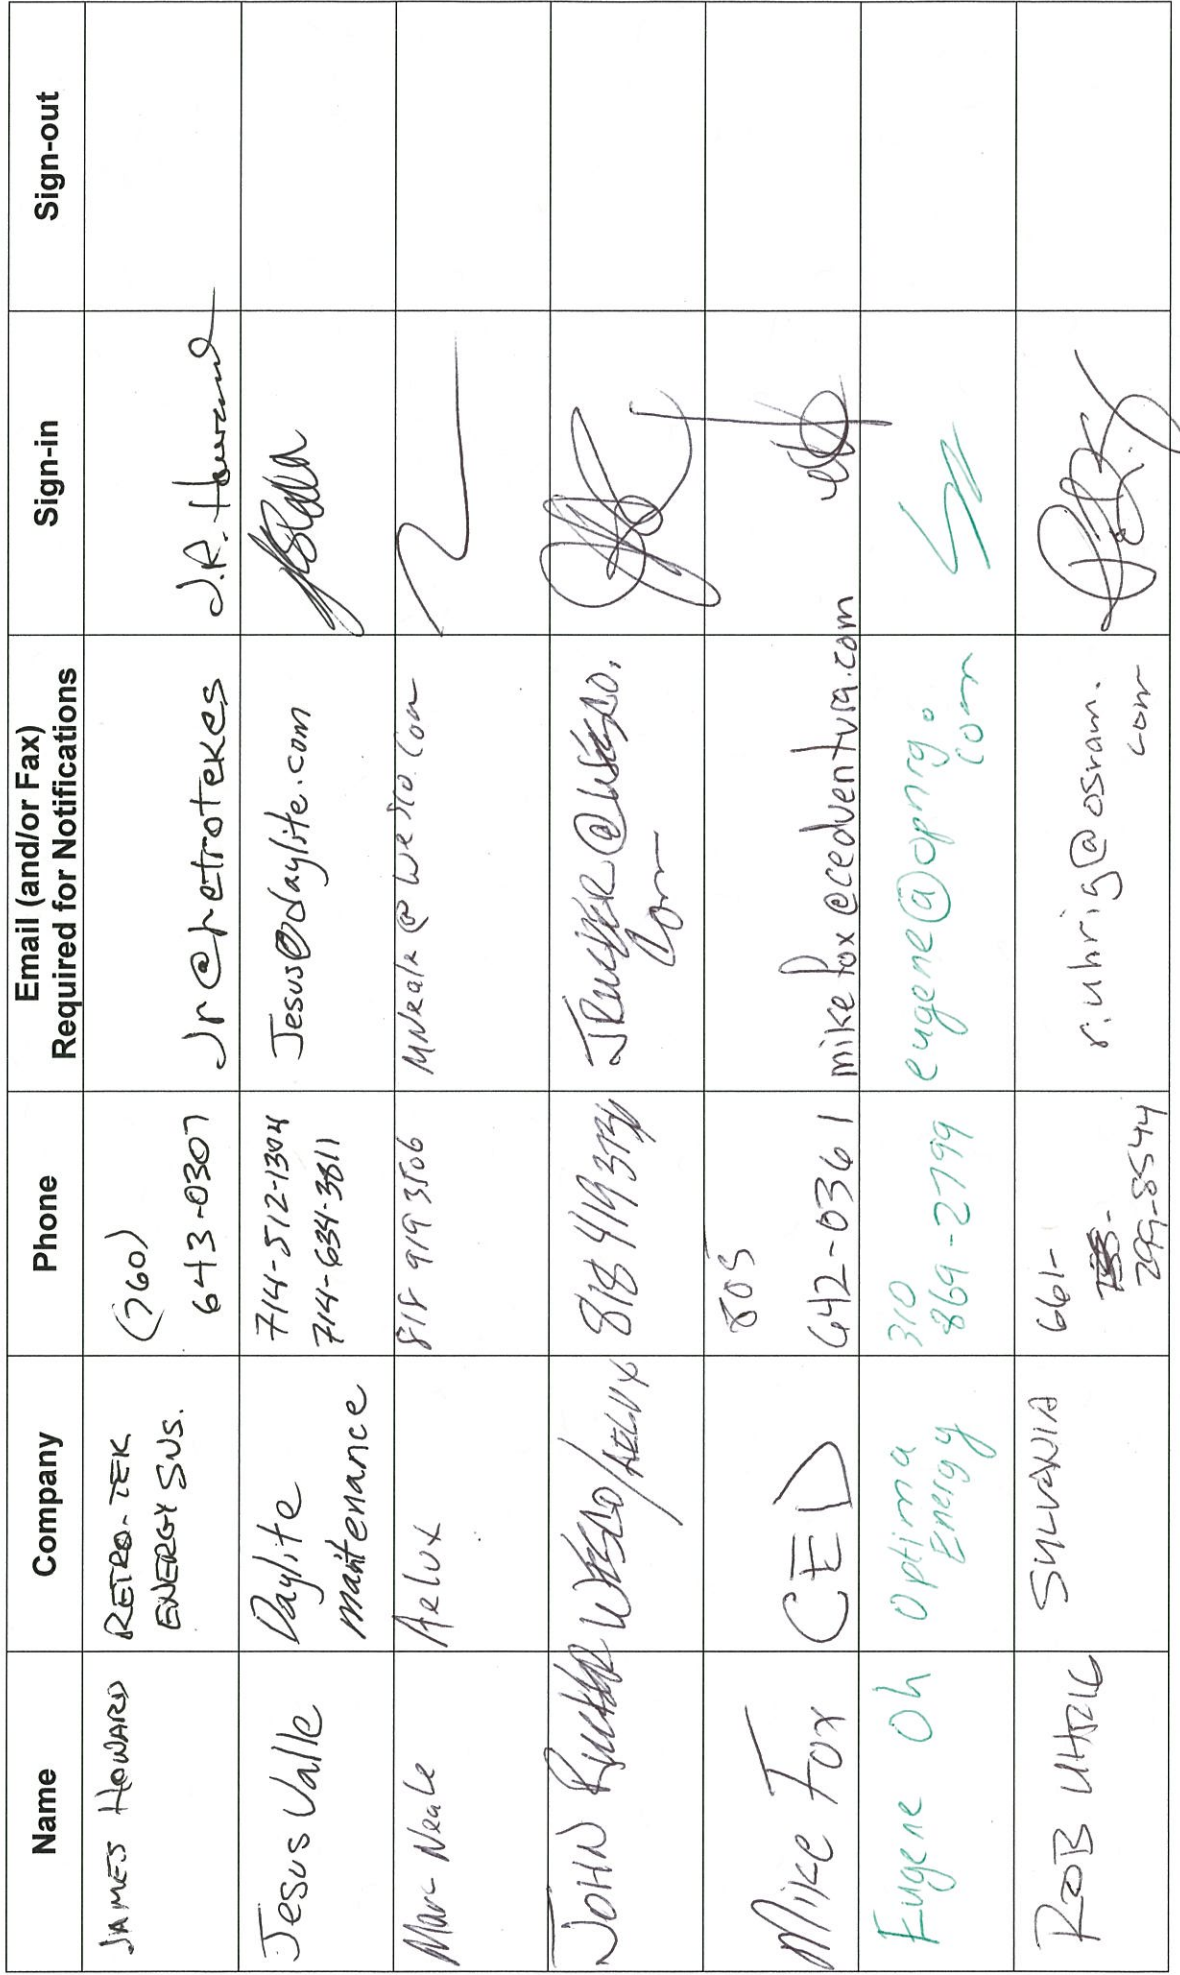 Name Company Phone Email (and/or Fax) Sign-in Sign-out
Required for Notifications
JAMES HOWARD
RETRO-TEK
ENERGY SVS.
(760)
643-0307
Jr@retrotekes
J.R. Howard
Jesus Valle
Daylite
maintenance
714-512-1304
714-634-3811
Jesus@daylite.com
Marc Neale
Aelux
818 919 3506
MNeale@wesco.com
JOHN
/AELUX
818 419
Mike Fox
CED
805
642-0361
mikefox@cedventura.com
Eugene Oh
Optima
Energy
310
869-2799
eugene@opnrg.
com
ROB UHRIG
SYLVANIA
661-
299-8544
r.uhrig@osram.
com